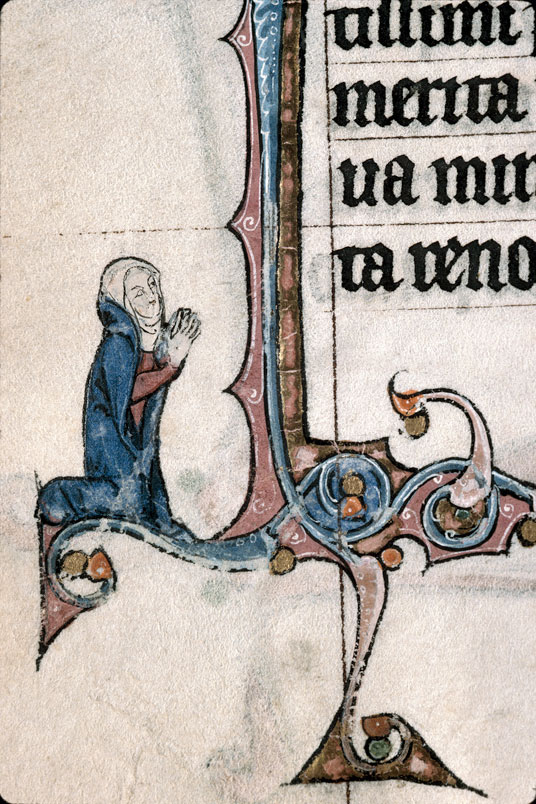 tillimi
merita
ua mir
ta reno